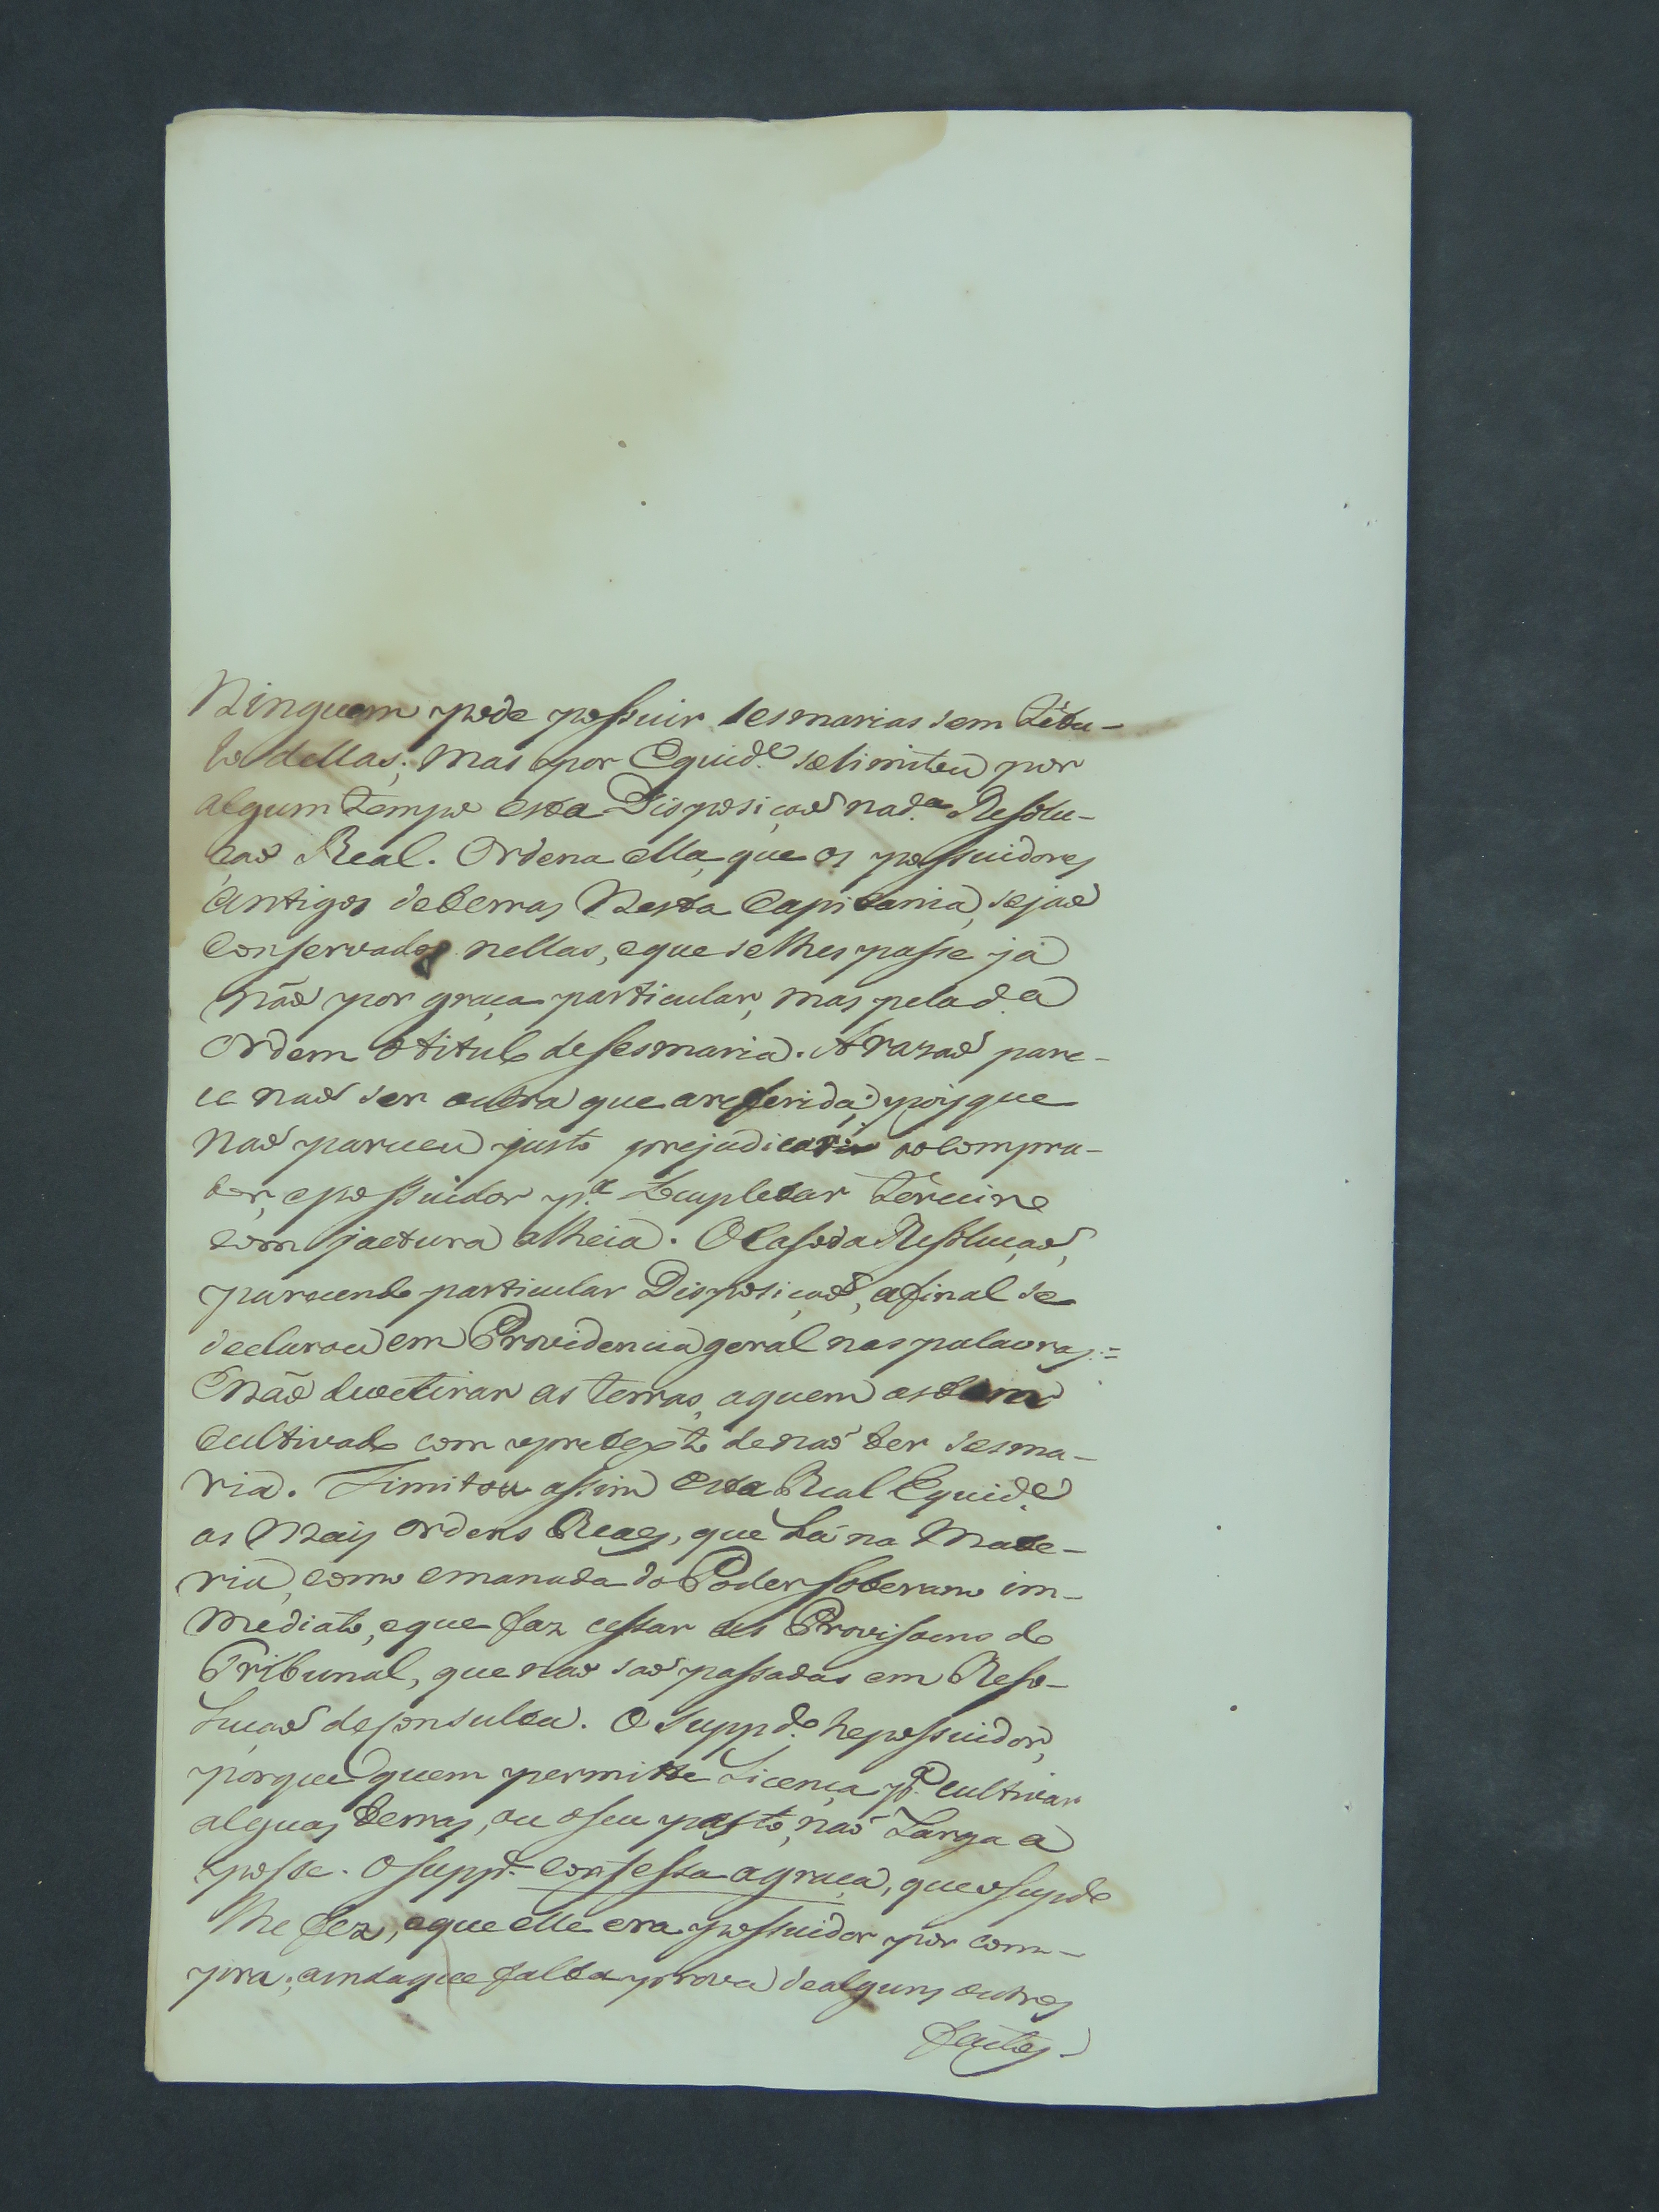 Ninguem pode possuir sesmarias sem titu-
lo dellas; mas por Equid.e se limitou por
algum tempo esta Disposiçaõ na d.a Resolu-
çaõ Real. Ordena ella, que os possuidores
antigos de terras Nesta Capitania, sejaõ
Conservados nellas, e que se lhes passe já
não por graça particular, mas pela d.a
Ordem o titulo de sesmaria. A razaõ pare-
ce naõ ser outra que a referida; poisque
Naõ pareceu justo prejudicar ao Compra-
dor, e possuidor p.a Locupletar terceiro
com jactura alheia. O Caso da Resoluçaõ,
parecendo particular Disposiçaõ, afinal se
declarou em Providencia geral nas palavras:=
E não devetirar as terras, aquem as tem
Cultivado com o pretexto de naõ ter sesma-
ria. Limitou assim esta Real Equid.e
as Mais ordens Reaes, que há na Mate-
ria, como emanada do Poder Soberano im-
mediato, e que faz cessar as Provisoens do
Tribunal, que naõ saõ passadas em Reso-
luçaõ de consulta. O Supp.do he possuidor,
porque quem permitte Licença p.a cultivar
alguas terras, ou o seu pasto, naõ Larga a
posse. O supp.e confessa a graça, que o sup.do
lhe fez, e que elle era possuidor por com-
pra; ainda que falta prova de alguns outros
factos